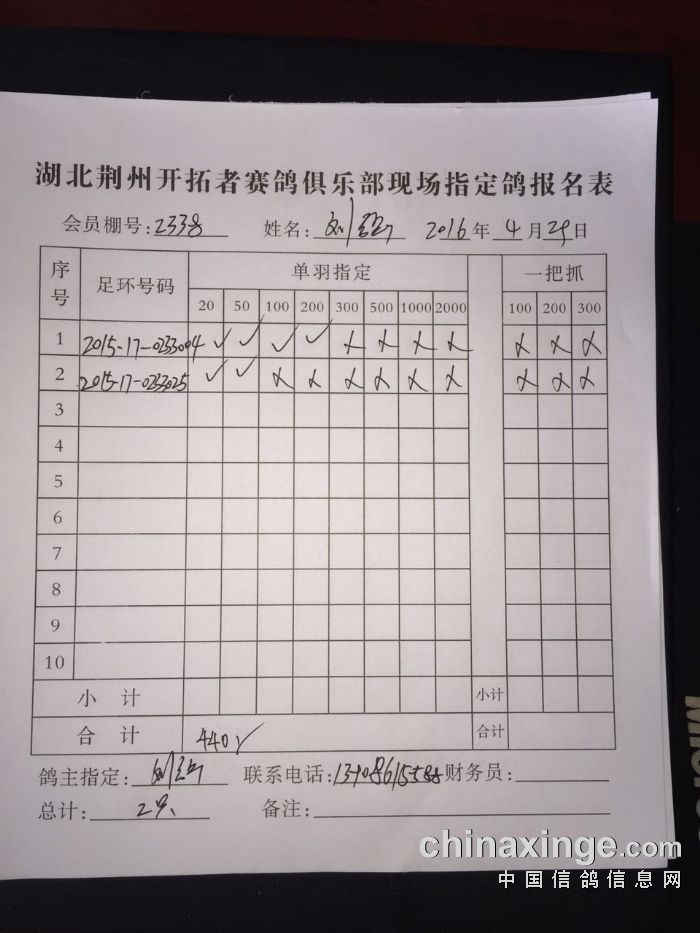 湖北荆州开拓者赛鸽俱乐部现场指定鸽报名表
会员棚号: 2338 姓名: 刘 2016年 4月29日
序号 足环号码 单羽指定 一把抓
20 50 100 200 300 500 1000 2000 100 200 300
1 2015-17-0233094 ✓ ✓ ✓ ✓ X X X X X X X
2 2015-17-0233025 ✓ ✓ X X X X X X X X X
3
4
5
6
7
8
9
10
小计 小计
合计 440 ✓ 合计
鸽主指定: 刘 联系电话: 财务员:
总计: 2只 备注:
chinaxinge.com
中国信鸽信息网